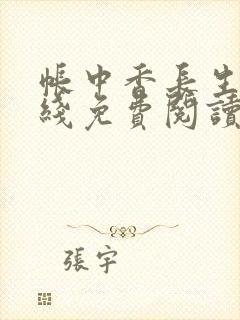 帳中香長生
綫免費閱讀
張宇